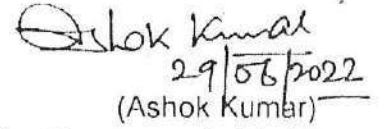 Ashok Kumar
29/06/2022
(Ashok Kumar)